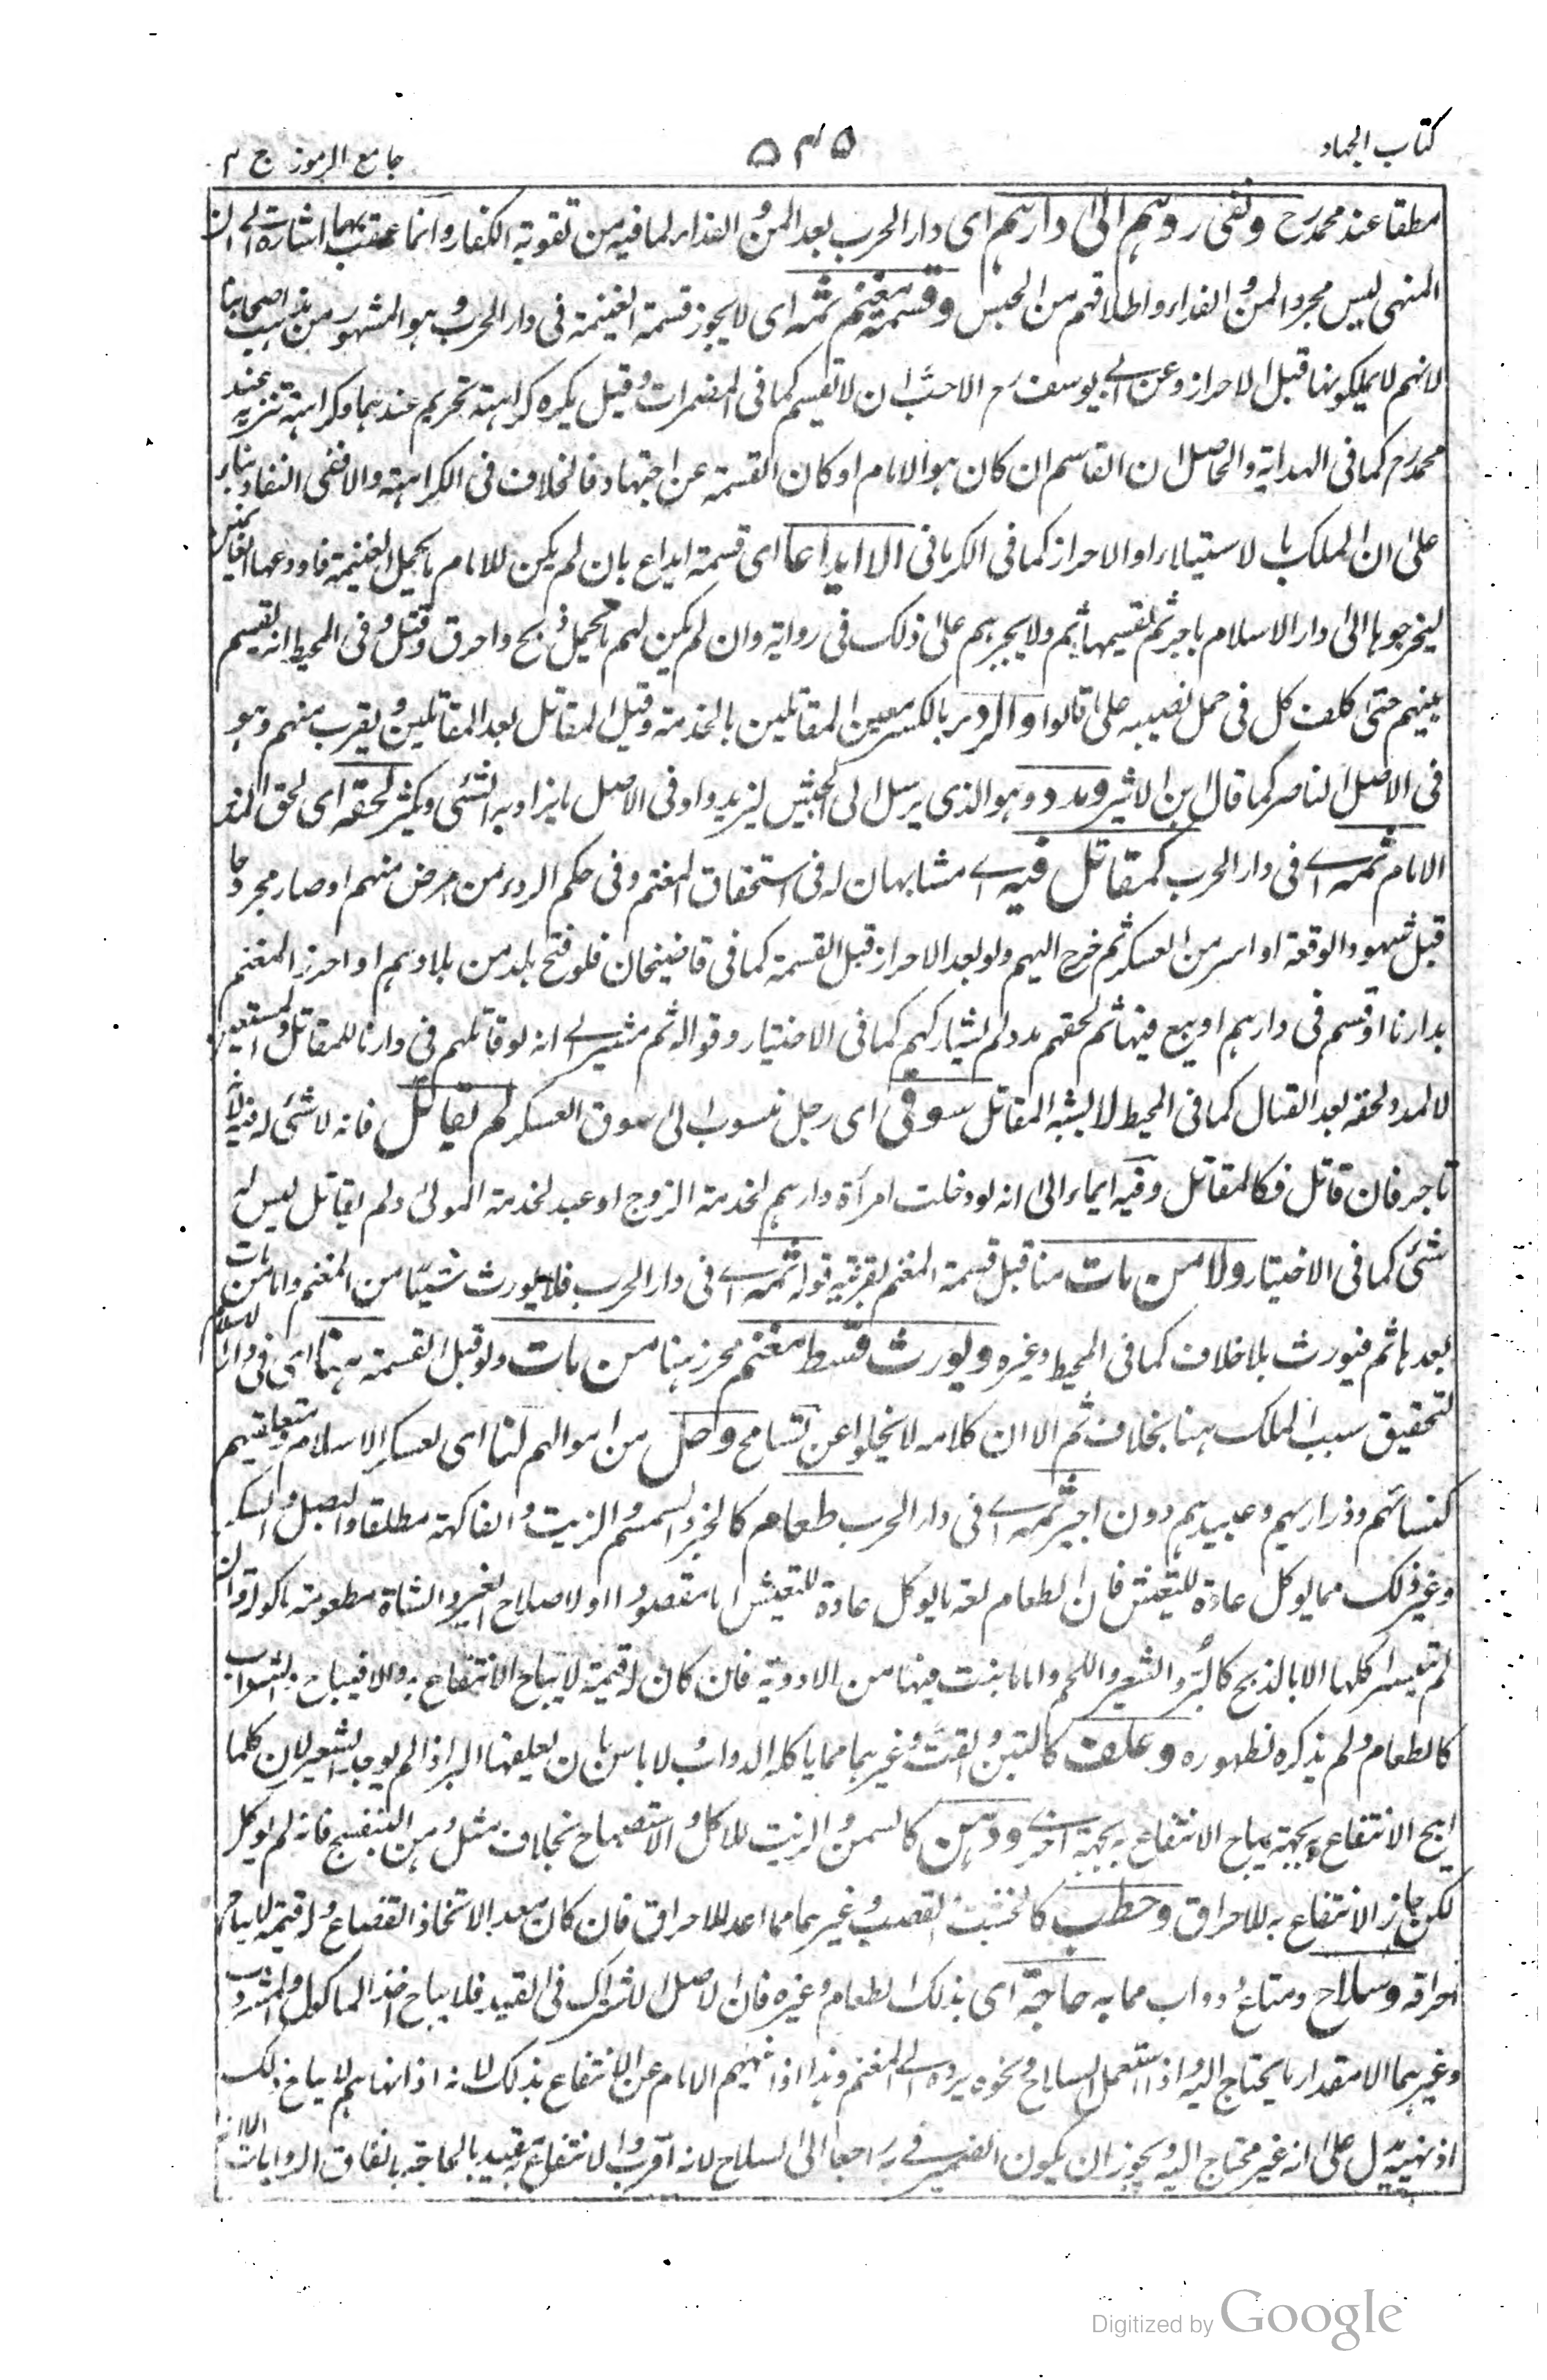 كتاب الجهاد
٥٤٥
جامع الرموز ج ٣
مطلقا عند محمد رح ونفى ردهم الى دارهم اى دار الحرب بعد المن والفداء لما فيه من تقوية الكفار وانما عقب بهما اشارة الى ان
المنهى ليس مجرد المن والفداء واطلاقهم من الحبس وقسمة مغنم ثمه اى لا يجوز قسمة الغنيمة فى دار الحرب وهو المشهور من مذهب اصحابنا
لانهم لا يملكونها قبل الاحراز وعن ابى يوسف رح الاحب ان لا تقسم كما فى المضمرات وقيل يكره كراهة تحريم عندهما وكراهة تنزيه عند
محمد رح كما فى الهداية والحاصل ان القاسم ان كان هو الامام او كان القسمة عن اجتهاد فالخلاف فى الكراهة والا ففى النفاذ بناء
على ان الملك بالاستيلاء او الاحراز كما فى الكرمانى الا ايداعا اى قسمة ايداع بان لم يكن للامام ما يحمل الغنيمة فاودعها الغانمين
ليخرجوها الى دار الاسلام باجر ثم تقسيمها ثم ولا يجبرهم على ذلك فى رواية وان لم يكن لهم ما يحمل ذبح واحرق وقتل وفى المحيط انه يقسم
بينهم حتى كلف كل فى حمل نصيبه على ما قالوا والردء بالكسر معين المقاتلين بالخدمة وقيل المقاتل بعد المقاتلين ويقرب منهم وهو
فى الاصل الناصر كما قال ابن الاثير ومدد وهو الذى يرسل الى الجيش ليزيدوا وفى الاصل ما يزاد به الشئ ويكثر لحقه اى لحق المدد
الامام ثمه اى فى دار الحرب كمقاتل فيه اى مشابهان له فى استحقاق المغنم وفى حكم الردء من مرض منهم او صار مجروحا
قبل شهود الوقعة او اسر من العسكر ثم خرج اليهم ولو بعد الاحراز قبل القسمة كما فى قاضيخان فلو فتح بلد من بلادهم او احرز المغنم
بدارنا او قسم فى دارهم او بيع فيها ثم لحقهم مدد لم يشاركهم كما فى الاختيار وقوله ثم مشير الى انه لو قاتلهم فى دارنا للمقاتل والمستعين
لا لمدد لحقه بعد القتال كما فى المحيط لا يشبه المقاتل سوقى اى رجل منسوب الى سوق العسكر لم يقاتل فانه لا شئ له فيه لانه
تاجر فان قاتل فكالمقاتل وفيه ايماء الى انه لو دخلت امرأة دارهم لخدمة الزوج او عبد لخدمة المولى ولم يقاتل ليس له
شئ كما فى الاختيار ولا من مات منا قبل قسمة المغنم بقرينة قوله ثمه اى فى دار الحرب فلا يورث شيئا من المغنم واما من مات
بعدها ثم فيورث بلا خلاف كما فى المحيط وغيره ويورث قسط مغنم محرز هنا من مات ولو قبل القسمة ههنا اى فى دار الاسلام
لتحقيق سبب الملك هنا بخلاف ثم الا ان كلامه لا يخلو عن تسامح وحل من اموالهم لنا اى لعسكر الاسلام ومتعلقيهم
كنسائهم وذراريهم وعبيدهم دون اجير ثمه اى فى دار الحرب طعام كالخبز والسمسم والزيت والفاكهة مطلقا والبصل والسكر
وغير ذلك مما يوكل عادة للتعيش فان الطعام لغة ما يوكل عادة للتعيش اما مقصودا او لاصلاح الغير والشاة مطعومة ماكولة وان
لم يتيسر اكلها الا بالذبح كالبر والشعير واللحم واما ما ينبت فيها من الادوية فان كان له قيمة لا يباح الانتفاع به والا فيباح والشراب
كالطعام ولم يذكره لظهوره وعلف كالتبن والقت وغيرهما مما ياكله الدواب ولا باس بان يعلفها البر اذا لم يوجد الشعير لان كلما
ابيح الانتفاع بجهة يباح الانتفاع به بجهة اخرى ودهن كالسمن والزيت للاكل والاستصباح بخلاف مثل دهن البنفسج فانه لم يوكل
لكن جاز الانتفاع به للاحراق وحطب كالخشب والقصب وغيرهما مما اعد للاحراق فان كان معدا لاتخاذ القصاع وله قيمة لا يباح
احراقه وسلاح ومتاع ودواب مما به حاجة اى بذلك الطعام وغيره فان الاصل الاشتراك فى القيد فلا يباح اخذ الماكول والمشروب
وغيرهما الا مقدار ما يحتاج اليه واذا استعمل السلاح ونحوه يرده الى المغنم وهذا اذا لم ينههم الامام عن الانتفاع بذلك لانه اذا نهاهم لا يباح ذلك
اذ نهيه يدل على انه غير محتاج اليه ويجوز ان يكون الضمير فى به راجعا الى السلاح لانه اقرب والانتفاع به مقيد بالحاجة باتفاق الروايات
Digitized by Google